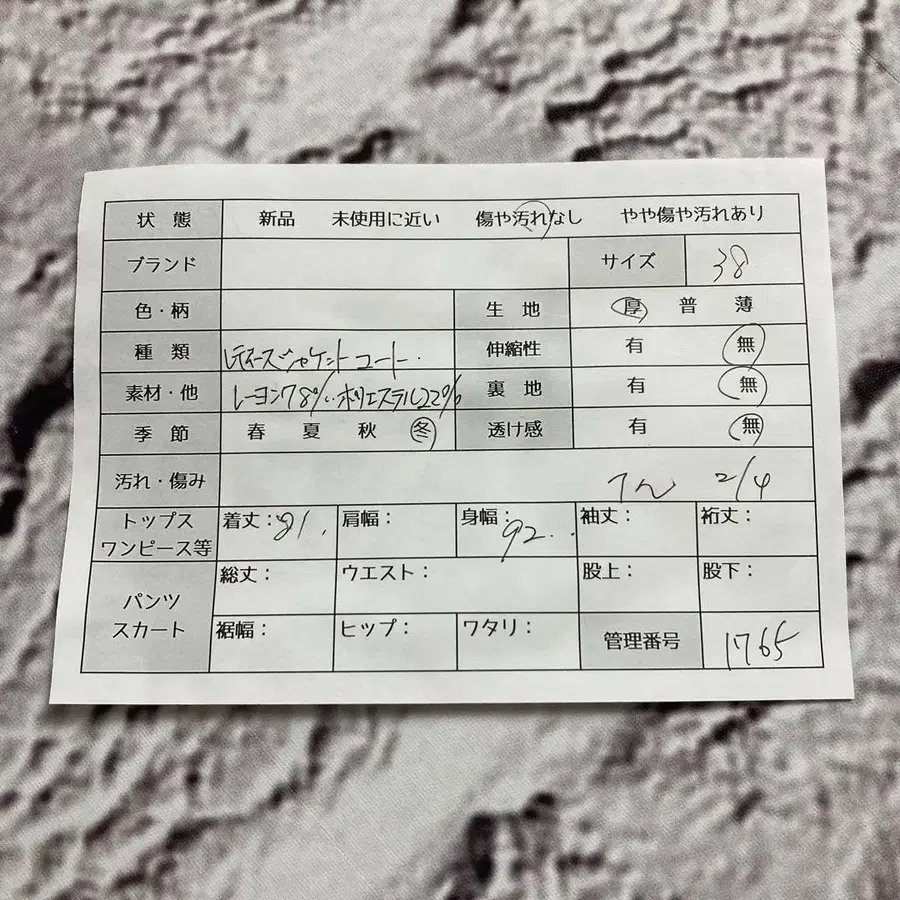 状態 新品 未使用に近い 傷や汚れなし やや傷や汚れあり
ブランド サイズ 38
色・柄 生地 厚 普 薄
種類 レディースジャケットコート 伸縮性 有 無
素材・他 レーヨン78%..ポリエステル22% 裏地 有 無
季節 春 夏 秋 冬 透け感 有 無
汚れ・傷み 2/4
トップス ワンピース等 着丈:81. 肩幅: 身幅:92.. 袖丈: 裄丈:
パンツ スカート 総丈: ウエスト: 股上: 股下:
裾幅: ヒップ: ワタリ: 管理番号 1765